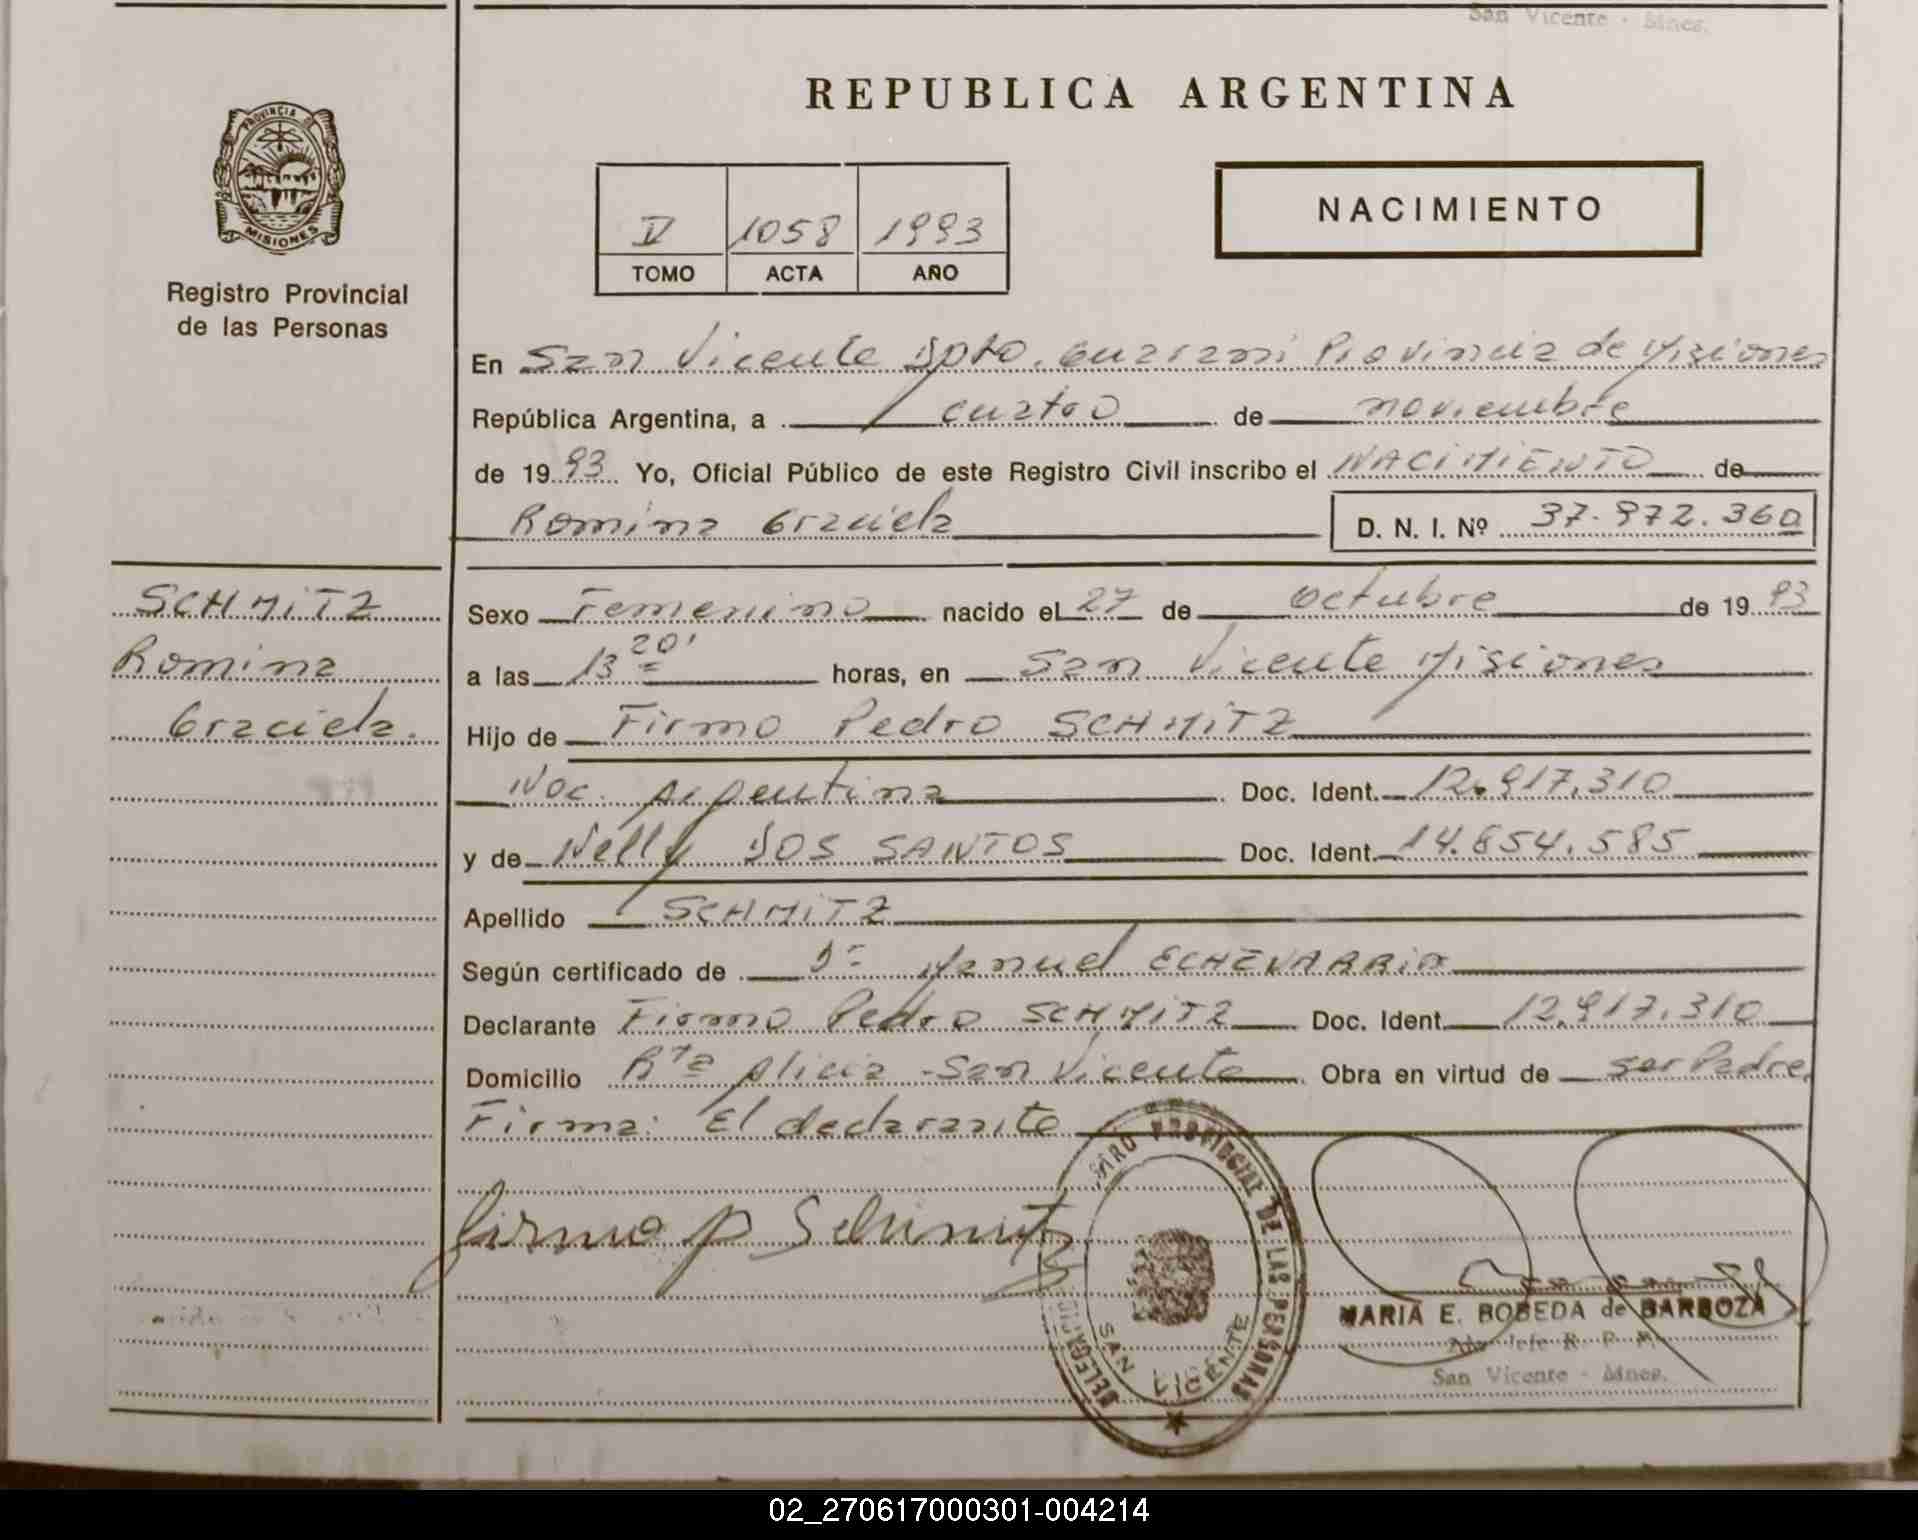 San Vicente - Mnes.
REPUBLICA ARGENTINA
PROVINCIA DE
MISIONES
Registro Provincial
de las Personas
V 1058 1993
TOMO ACTA AÑO
NACIMIENTO
En San Vicente Dpto. Guarani Provincia de Misiones
República Argentina, a cuatro de noviembre
de 1993 Yo, Oficial Público de este Registro Civil inscribo el NACIMIENTO de
Romina Graciela D. N. I. Nº 37.972.360
SCHMITZ
Romina
Graciela.
Sexo Femenino nacido el 27 de octubre de 1993
a las 13 20' horas, en San Vicente Misiones
Hijo de Firmo Pedro SCHMITZ
Nac. Argentina Doc. Ident. 12.917.310
y de Nelly DOS SANTOS Doc. Ident. 14.654.585
Apellido SCHMITZ
Según certificado de Dr Manuel ECHEVARRIA
Declarante Firmo Pedro SCHMITZ Doc. Ident. 12.917.310
Domicilio Rta Alicia - San Vicente Obra en virtud de ser Padre
Firma: El declarante
Firmo P Schmitz
PROVINCIAL DE LAS PERSONAS
DELEGACIO
SAN VICENTE
MARIA E. BOBEDA de BARBOZA
Jefe R. P. P.
San Vicente - Mnes.
02_270617000301-004214